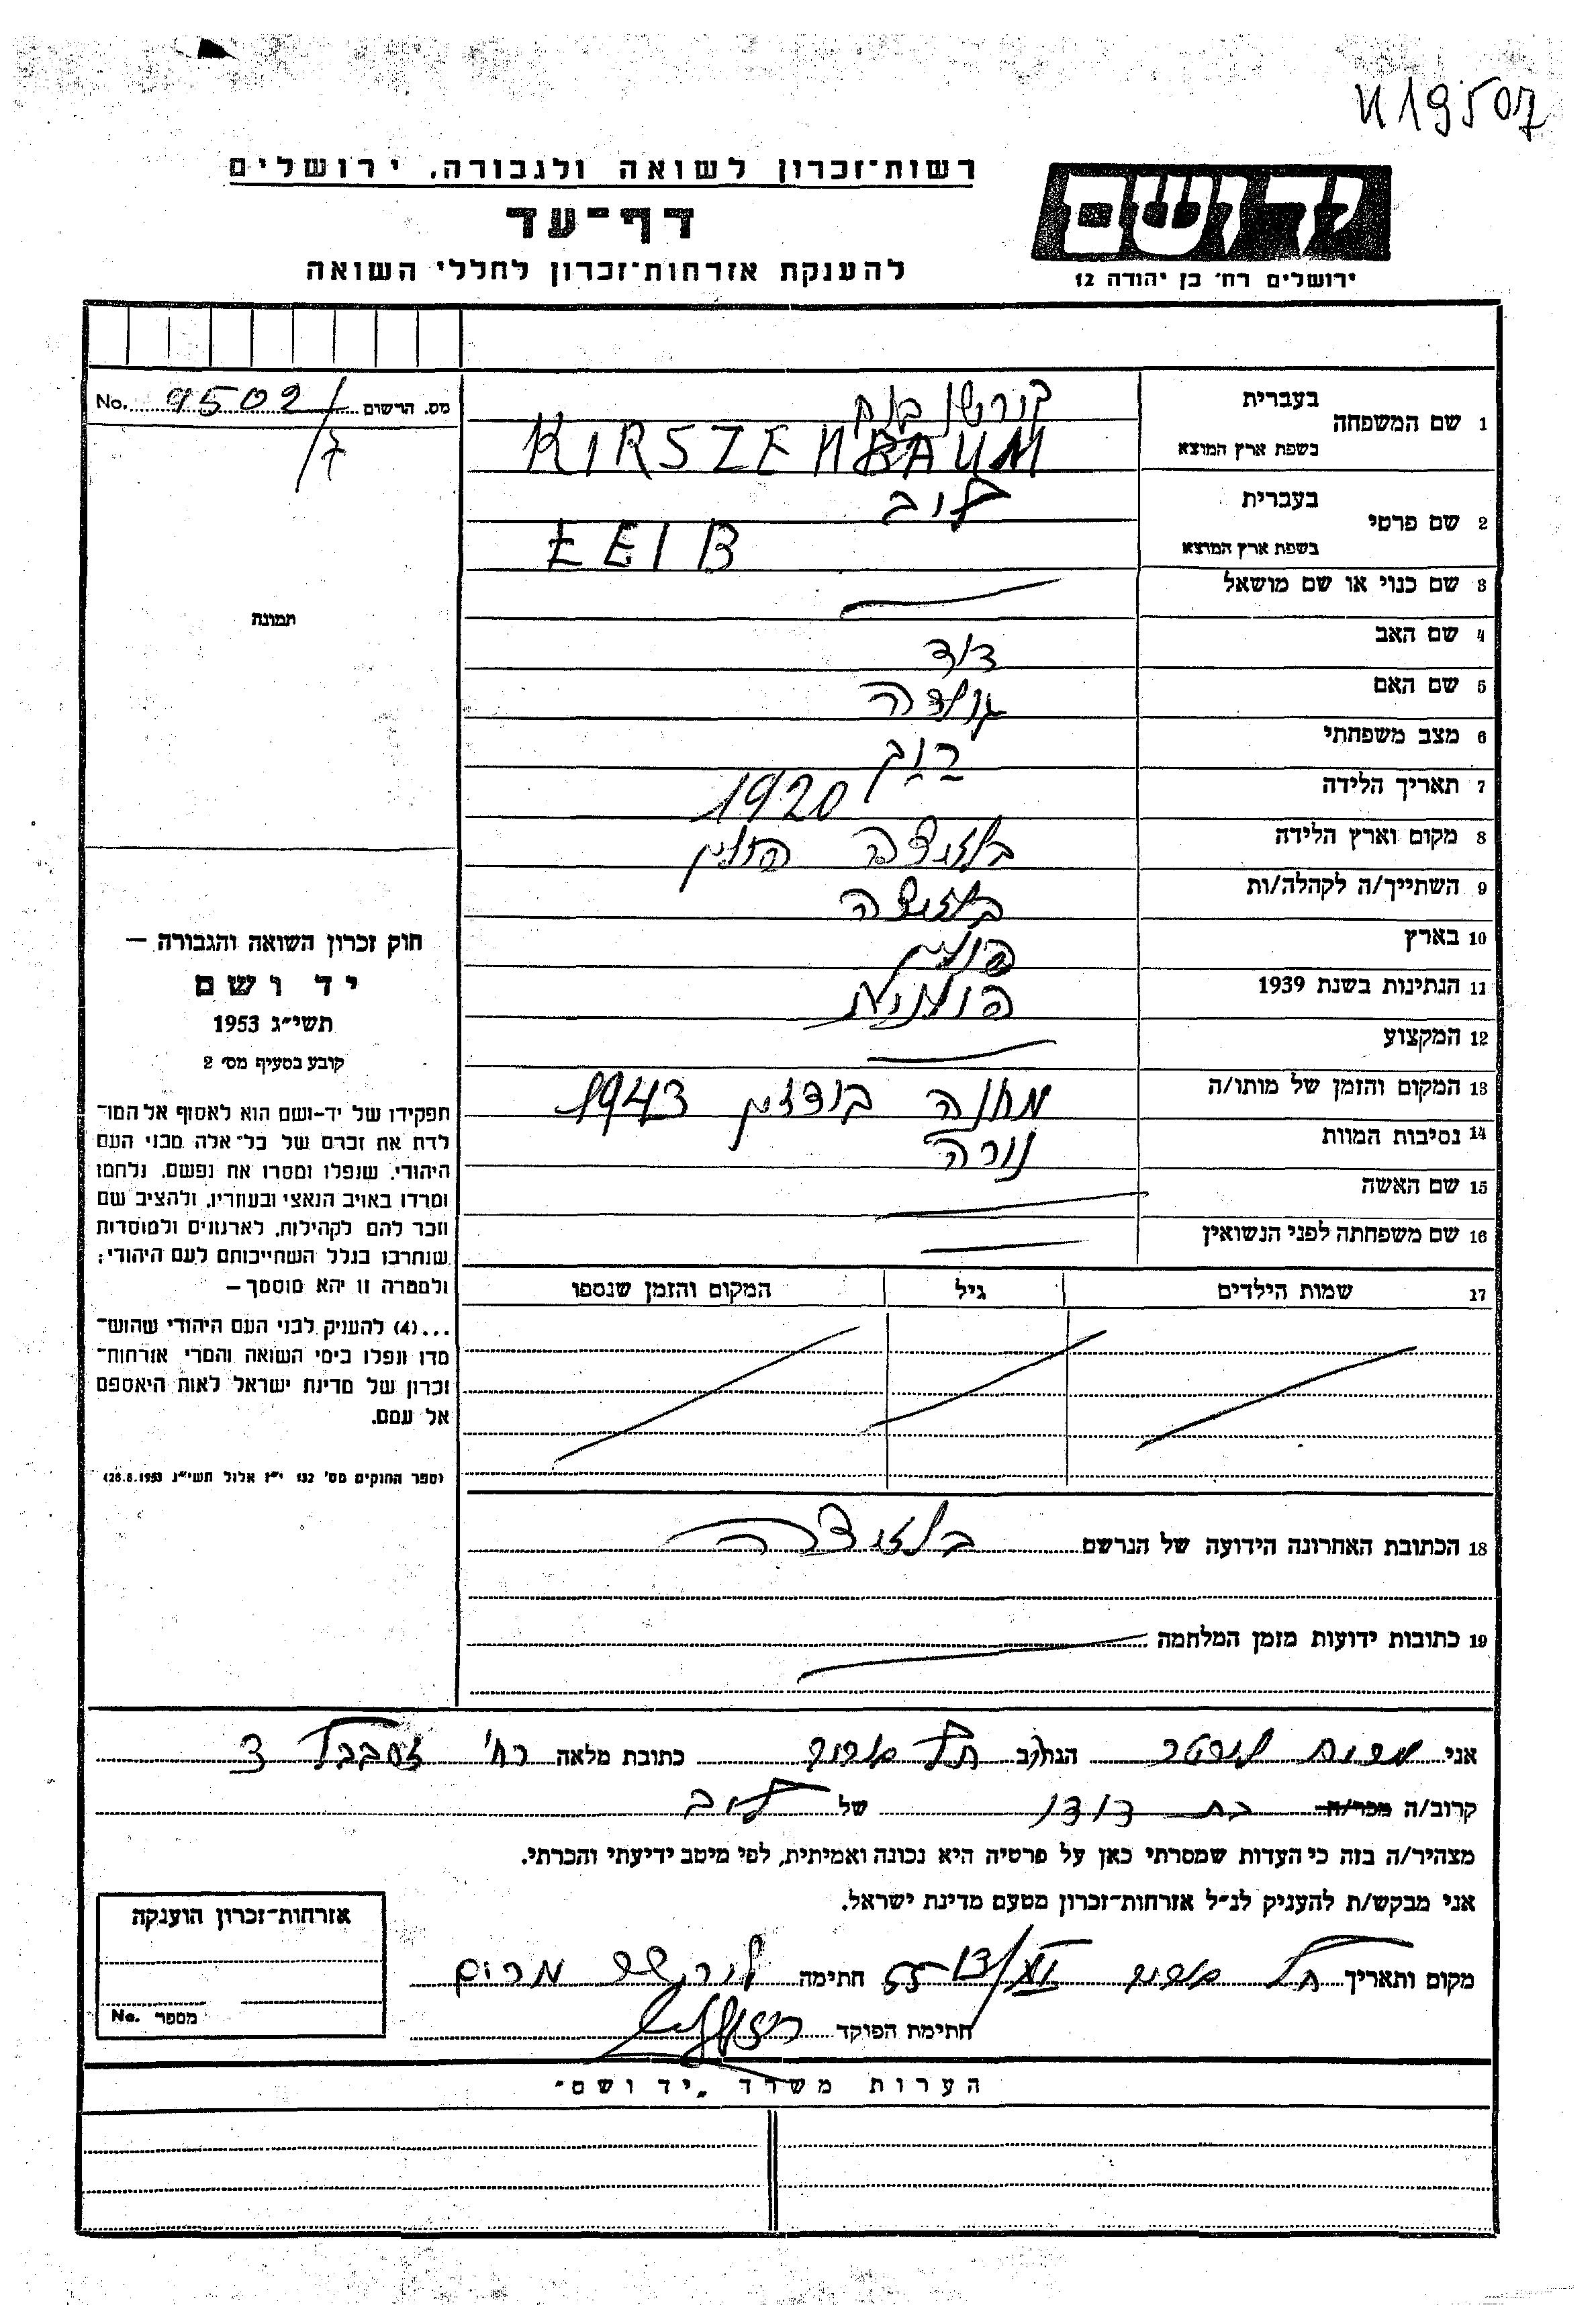 ש19507
רשות־זכרון לשואה ולגבורה. ירושלים
דף־עד
להענקת אזרחות־זכרון לחללי השואה
יד ושם
ירושלים רח' בן יהודה 12
מס. הרשום 9502/7 No.
1 שם המשפחה
בעברית קירשנבוים
בשפת ארץ המוצא KIRSZENBAUM
2 שם פרטי
בעברית ליב
בשפת ארץ המוצא ŁEIB
3 שם כנוי או שם מושאל
4 שם האב דוד
5 שם האם גולדה
6 מצב משפחתי רווק
7 תאריך הלידה 1920
8 מקום וארץ הלידה בלוזיצה פולין
9 השתייך/ה לקהלה/ות
10 בארץ פולין
11 הנתינות בשנת 1939 פולנית
12 המקצוע
13 המקום והזמן של מותו/ה מחנה בודזין 1943
14 נסיבות המוות נורה
15 שם האשה
16 שם משפחתה לפני הנשואין
17 שמות הילדים גיל המקום והזמן שנספו
18 הכתובת האחרונה הידועה של הנרשם
19 כתובות ידועות מזמן המלחמה
תמונה
חוק זכרון השואה והגבורה —
יד ושם
תשי״ג 1953
קובע בסעיף מס׳ 2
תפקידו של יד-ושם הוא לאסוף אל המו־
לדת את זכרם של כל־אלה מבני העם
היהודי, שנפלו ומסרו את נפשם, נלחמו
ומרדו באויב הנאצי ובעוזריו, ולהציב שם
וזכר להם לקהילות, לארגונים ולמוסדות
שנחרבו בגלל השתייכותם לעם היהודי;
ולמטרה זו יהא מוסמך —
...(4) להעניק לבני העם היהודי שהוש־
מדו ונפלו בימי השואה והמרי אזרחות־
זכרון של מדינת ישראל לאות היאספם
אל עמם.
(ספר החוקים מס׳ 132 י״ז אלול תשי״ג 28.8.1953)
אני מרים הגר/ב תל אביב כתובת מלאה רח' זרובבל 3
קרוב/ה מכר/ה בת דודו של ליב
מצהיר/ה בזה כי העדות שמסרתי כאן על פרטיה היא נכונה ואמיתית, לפי מיטב ידיעתי והכרתי.
אני מבקש/ת להעניק לנ״ל אזרחות־זכרון מטעם מדינת ישראל.
מקום ותאריך תל אביב חתימה מרים
חתימת הפוקד
אזרחות־זכרון הוענקה
מספר No.
הערות משרד „יד ושם״